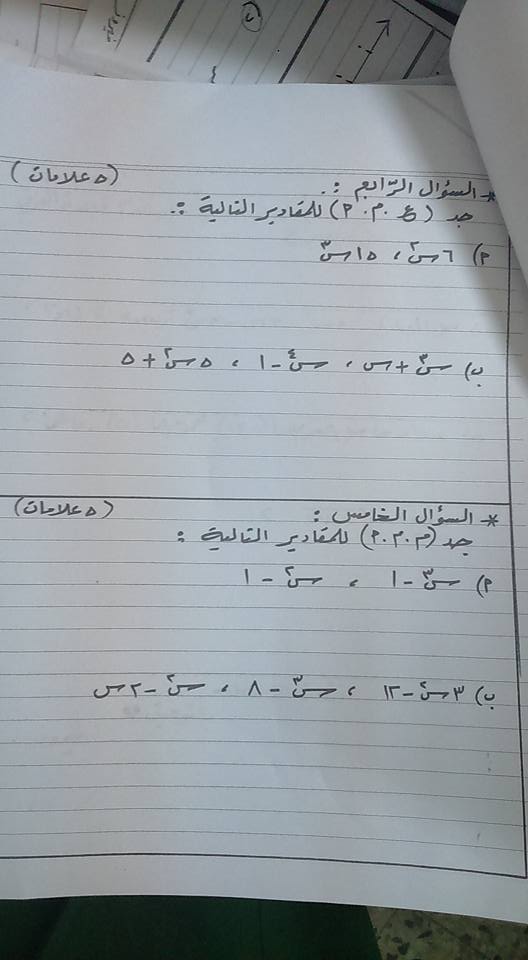 * السؤال الرّابع :. (٥ علامات)
جد (ع.م.أ) للمقادير التالية :.
أ) ٦س٢ ، ١٥س٣
ب) س٣ + س ، س٤ - ١ ، ٥س٢ + ٥
* السؤال الخامس : (٥ علامات)
جد (م.م.أ) للمقادير التالية :
أ) س٣ - ١ ، س٢ - ١
ب) ٣س٢ - ١٢ ، س٣ - ٨ ، س٢ - ٢س